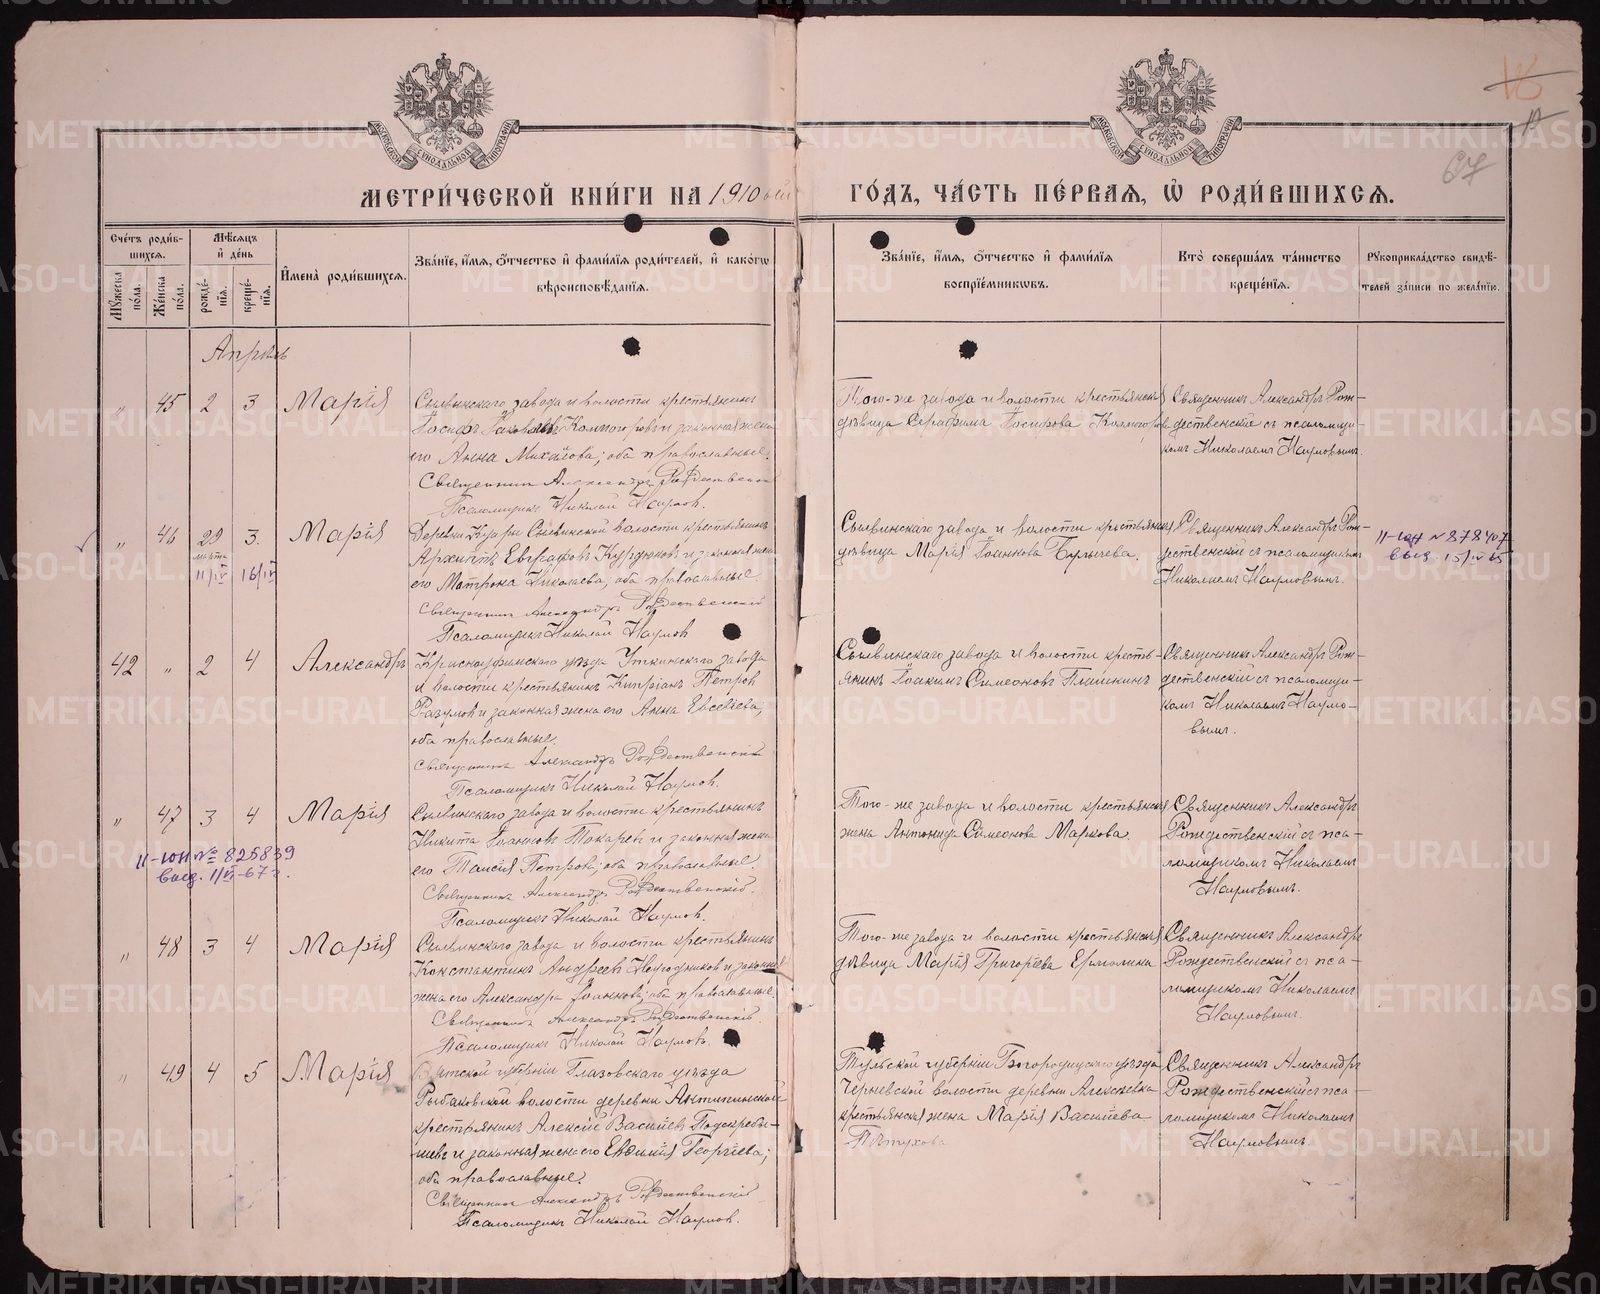 МОСКОВСКОЙ СѴНОДАЛЬНОЙ ТИПОГРАФІИ
МОСКОВСКОЙ СѴНОДАЛЬНОЙ ТИПОГРАФІИ
18
А
67
МЕТРИ́ЧЕСКОЙ КНИ́ГИ НА 1910 ый ГО́ДЪ, ЧА́СТЬ ПЕ́РВАЯ, Ѽ РОДИ́ВШИХСЯ.
Сче́тъ роди́в-
шихся.
Мужеска по́ла.
Же́нска по́ла.
Мѣ́сяцъ
и҆ де́нь
рожде́-
нїя.
креще́-
нїя.
И҆мена̀ роди́вшихся.
Зва́нїе, и҆́мя, ѻ҆́тчество и҆ фами́лїя роди́телей, и҆ како́гѡ
вѣроисповѣ́данїя.
Зва́нїе, и҆́мя, ѻ҆́тчество и҆ фами́лїя
воспрїе́мникѡвъ.
Кто̀ соверша́лъ та́инство
креще́нїя.
Рꙋкоприкла́дство свидѣ́-
телей за́писи по жела́нїю.
Апрѣль
„ 45 2 3 Марія
Сылвинскаго завода и волости крестьянинъ
Іосифъ Іаковлевъ Колмогоровъ и законная жена
его Анна Михайлова; оба православные.
Священникъ Александръ Рождественскій
Псаломщикъ Николай Наумов.
Того-же завода и волости крестьянская
дѣвица Серафима Іосифова Колмогорова
Священникъ Александръ Рож-
дественскій съ псаломщи-
комъ Николаемъ Наумовымъ.
„ 46 29 3. Марія
марта
11/IV 16/IV
Деревни Сылвинской волости крестьянинъ
Архиппъ Евграфовъ и законная жена
его Матрона Николаева, оба православные.
Священникъ Александръ Рождественскій
Псаломщикъ Николай Наумов
Сылвинскаго завода и волости крестьянская
дѣвица Марія Іоаннова
Священникъ Александръ Рож-
дественскій съ псаломщикомъ
Николаемъ Наумовымъ.
II-юн №878407
выд. 15/IV 65
42 „ 2 4 Александръ
Красноуфимскаго уѣзда Уткинскаго завода
и волости крестьянинъ Кипріанъ Петровъ
Разумов и законная жена его Анна Евсевіева,
оба православные.
Священникъ Александръ Рождественскій
Псаломщикъ Николай Наумов.
Сылвинскаго завода и волости кресть-
янинъ Іоакимъ Симеоновъ Плишкинъ
Священникъ Александръ Рож-
дественскій съ псаломщи-
комъ Николаемъ Наумо-
вымъ.
„ 47 3 4 Марія
II-юн № 825839
выд. 1/VI-67 г.
Сылвинскаго завода и волости крестьянинъ
Никита Іоаннов Токарев и законная жена
его Таисія Петрова; оба православные
Священникъ Александръ Рождественскій.
Псаломщикъ Николай Наумов.
Того-же завода и волости крестьянская
жена Антонида Симеонова Маркова.
Священникъ Александръ
Рождественскій съ пса-
ломщикомъ Николаемъ
Наумовымъ.
„ 48 3 4 Марія
Сылвинскаго завода и волости крестьянинъ
Константинъ Андреев и законная
жена его Александра Іоаннова; оба православные.
Священникъ Александръ Рождественскій.
Псаломщикъ Николай Наумовъ.
Того-же завода и волости крестьянская
дѣвица Марія Григоріева Ермолина
Священникъ Александръ
Рождественскій съ пса-
ломщикомъ Николаемъ
Наумовымъ.
„ 49 4 5 Марія
Вятской губерніи Глазовскаго уѣзда
Рыбаковской волости деревни Антипинской
крестьянинъ Алексій Васильев Подскребы-
шевъ и законная жена его Евдокія Георгіева;
оба православные.
Священникъ Александръ Рождественскій
Псаломщикъ Николай Наумов.
Тульской губерніи Богородицкаго уѣзда
волости деревни Алексѣевка
крестьянская жена Марія Васильева
Пѣтухова
Священникъ Александръ
Рождественскій съ пса-
ломщикомъ Николаемъ
Наумовымъ.
METRIKI.GASO-URAL.RU